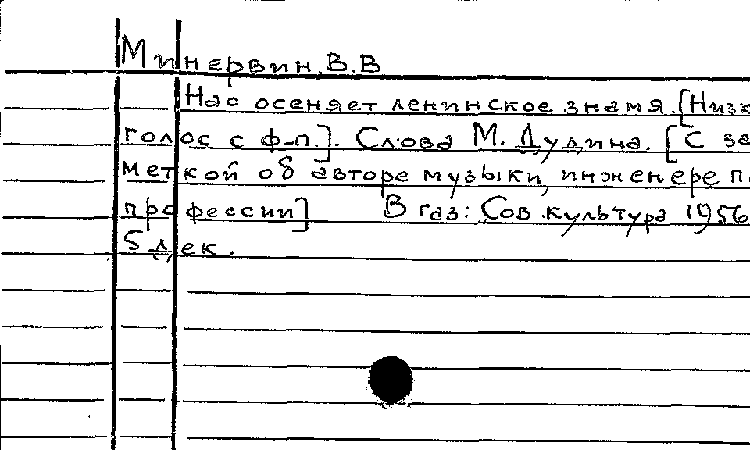 Минервин, В.В
Нас осеняет ленинское знамя. [Низк
голос с ф-п.]. Слова М. Дудина. [С за
меткой об авторе музыки, инженере п
профессии] В газ: Сов. культура 1956
5 дек.